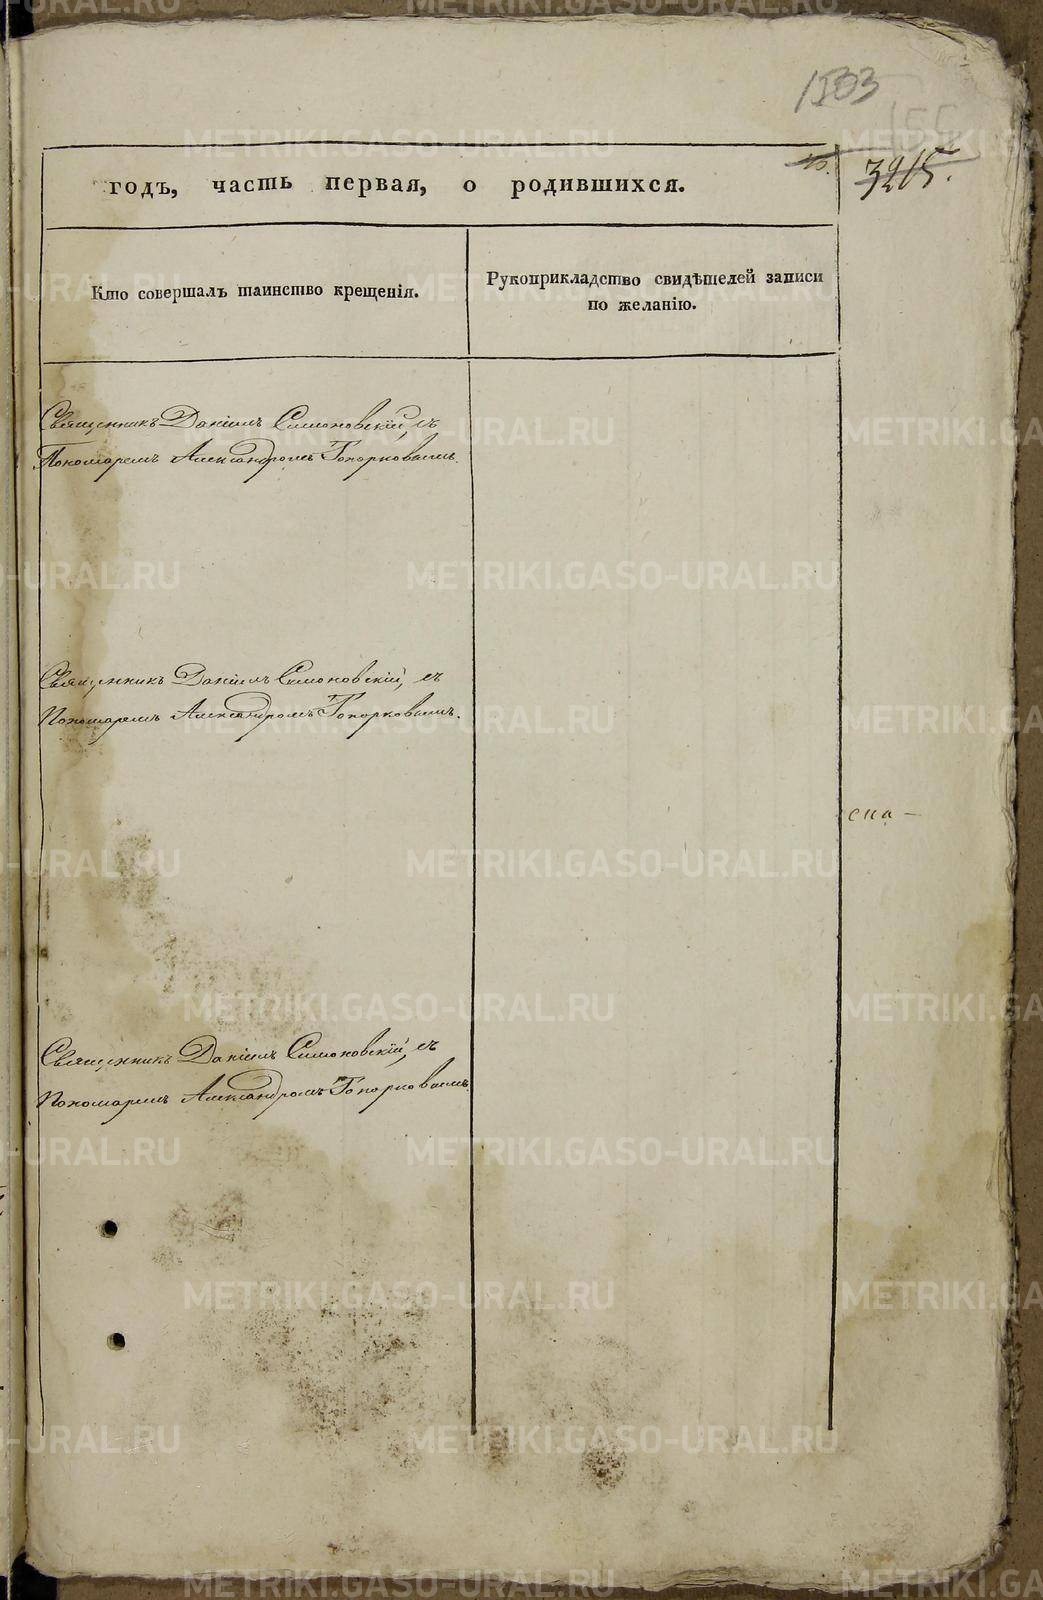 1533
155
3215.
годъ, часть первая, о родившихся.
Кто совершалъ таинство крещенія.
Рукоприкладство свидѣтелей записи
по желанію.
Священникъ Даніилъ Симоновскій, съ
Пономаремъ Александромъ Топорковымъ.
Священникъ Даніилъ Симоновскій, съ
Пономаремъ Александромъ Топорковымъ.
Священникъ Даніилъ Симоновскій, съ
Пономаремъ Александромъ Топорковымъ.
METRIKI.GASO-URAL.RU